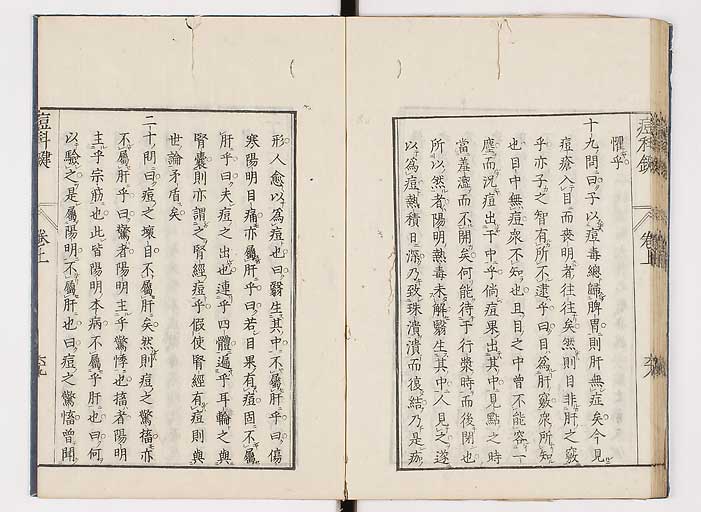 懼乎
十九問曰子以痘毒總歸脾胃則肝無症矣今見
痘瘡入目而喪明者往往矣然則目非肝之竅
乎亦子之智有所不逮乎曰目為肝竅衆所知
也目中無痘衆不知也且目之中曾不能容一
塵而況痘出于中乎倘痘果出其中見點之時
當羞澀而不開矣何能待于行漿時而後閉也
所以然者陽明熱毒未解翳生其中人見之遂
以為痘熱積日深乃致珠潰潰而復結乃是痂
形人愈以為痘也曰翳生其中不屬肝乎曰傷
寒陽明目痛亦屬肝乎曰若目果有痘固不屬
肝乎曰夫痘之出也連乎四體遍乎耳輪之與
腎囊則亦謂之腎經痘乎假使腎經有痘則與
世論矛盾矣
二十問曰痘之壞目不屬肝矣然則痘之驚搐亦
不屬肝乎曰驚者陽明主乎驚悸也搐者陽明
主乎宗筋也此皆陽明本病不屬乎肝也曰何
以驗之是屬陽明不屬肝也曰痘之驚搐曾聞
痘科鍵
卷上